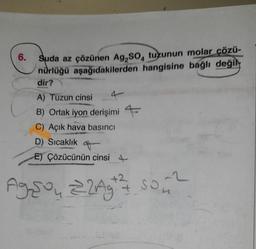 6. Suda az çözünen Ag₂SO₄ tuzunun molar çözü-
nürlüğü aşağıdakilerden hangisine bağlı değil-
dir?
A) Tuzun cinsi +
B) Ortak iyon derişimi +
C) Açık hava basıncı
D) Sıcaklık +
E) Çözücünün cinsi +
Ag₂SO₄ ⇌ 2Ag⁺² + SO₄⁻²